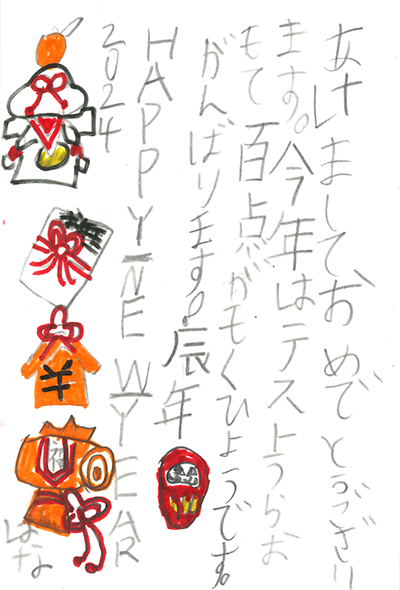 あけましておめでとうござい
ます。今年はテストうらお
もて百点がもくひょうです。
がんばります。辰年
HAPPY NEW YEAR
2024
¥
はな